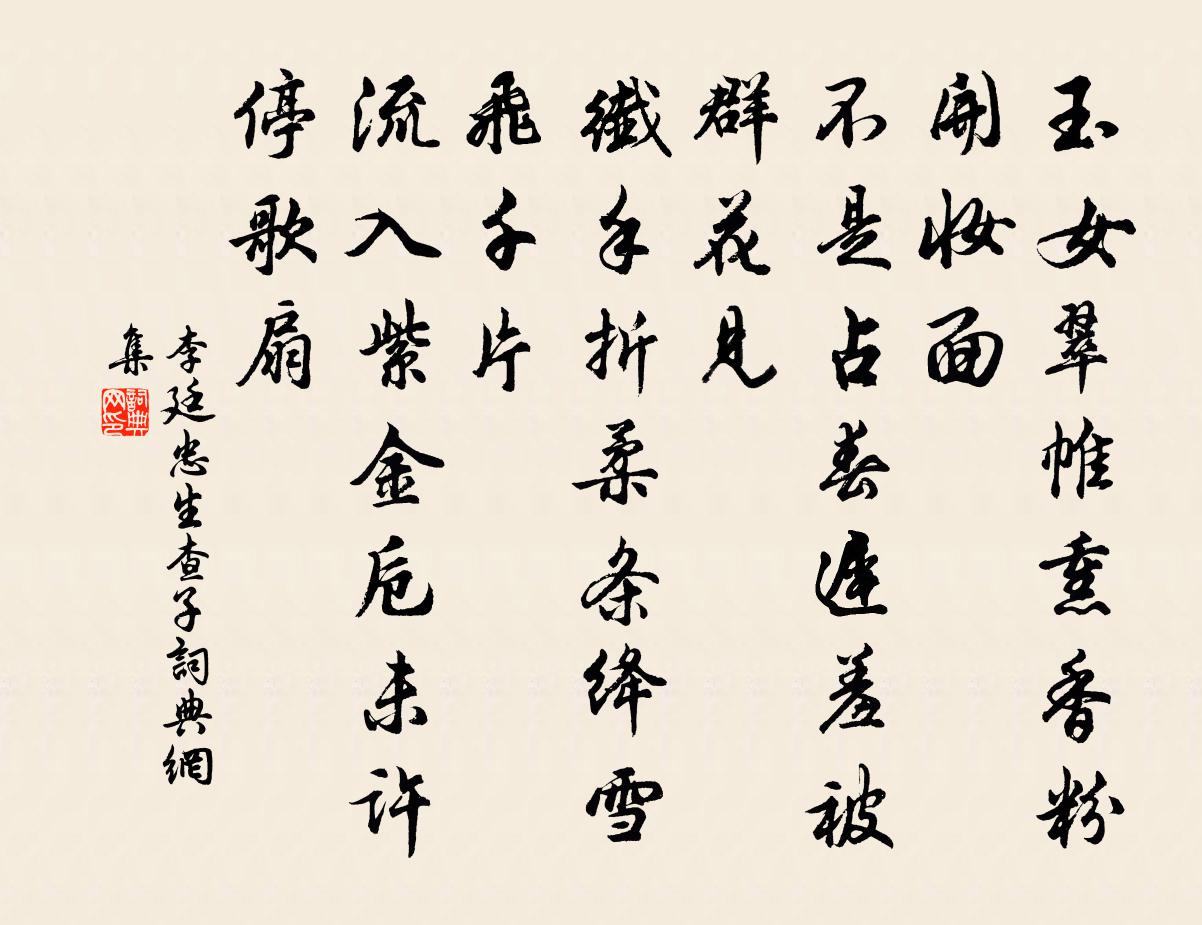 玉女翠帷熏香粉
開妝面
不是占春遲羞被
群花見
纖手折柔条絳雪
飛千片
流入紫金卮未許
停歌扇
李廷忠生查子詞典網
集
詞典
网印